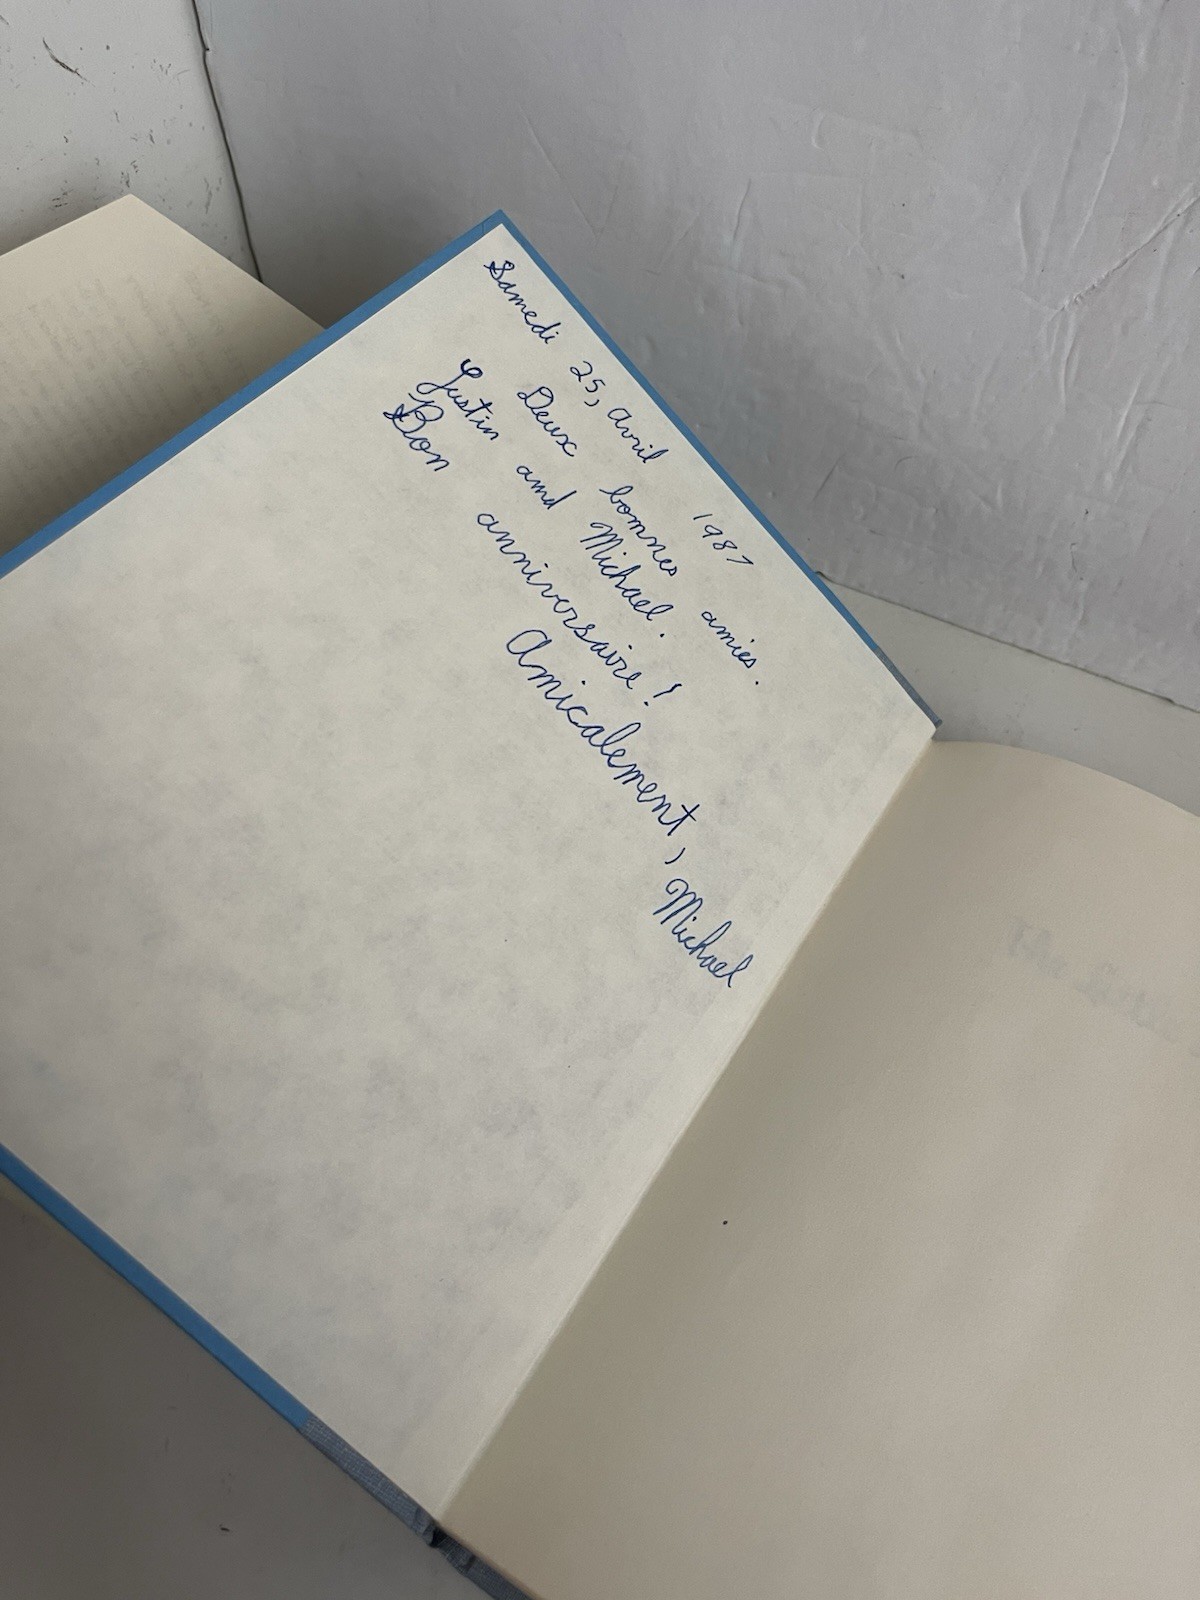 Samedi 25, Avril 1987
Deux bonnes amies.
Justin and Michael.
Bon anniversaire!
Amicalement, Michael